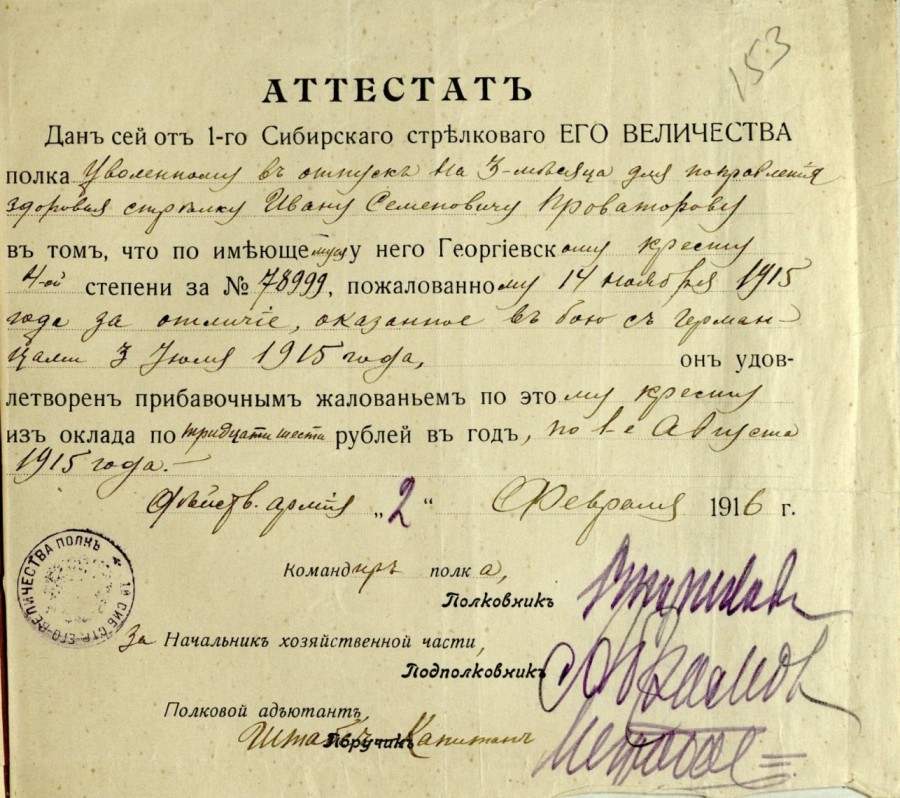 153
АТТЕСТАТЪ
Данъ сей отъ 1-го Сибирскаго стрѣлковаго ЕГО ВЕЛИЧЕСТВА
полка Уволенному въ отпускъ на 3-мѣсяца для поправленія
здоровья стрѣлку Ивану Семеновичу Проваторову
въ томъ, что по имѣющемуся у него Георгіевскому кресту
4-ой степени за № 78999, пожалованному 14 ноября 1915
года за отличіе, оказанное въ бою съ герман-
цами 3 Іюля 1915 года, онъ удов-
летворенъ прибавочнымъ жалованьемъ по этому кресту
изъ оклада по тридцати шести рублей въ годъ, по 1-е Августа
1915 года.-
Дѣйств. армія „2“ Февраля 1916 г.
Командиръ полка,
Полковникъ
За Начальникъ хозяйственной части,
Подполковникъ
Полковой адъютантъ
Штабсъ-Капитанъ
Поручикъ
1й СИБ. СТР. ЕГО ВЕЛИЧЕСТВА ПОЛКЪ